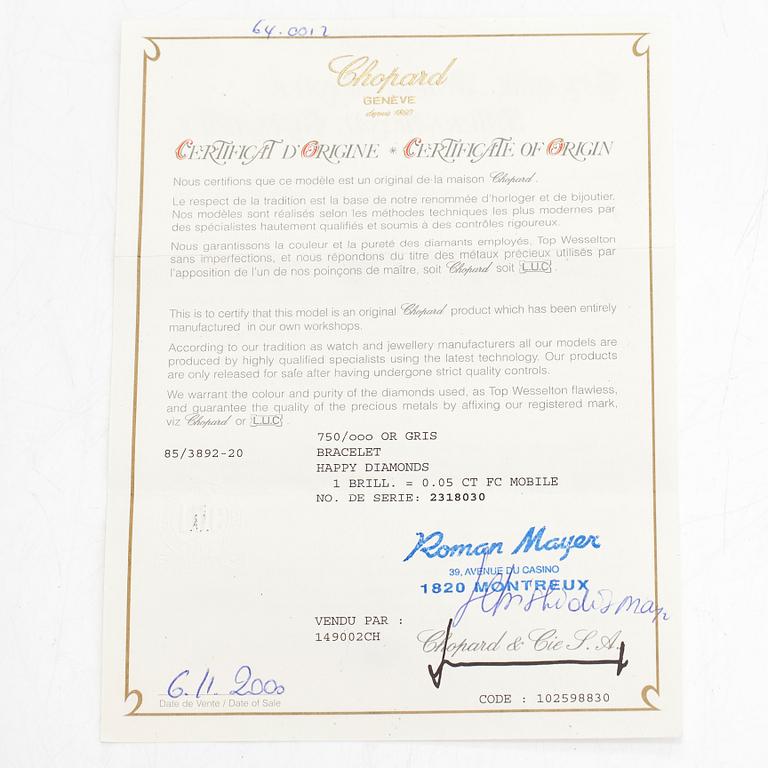 64.0012
Chopard
GENÈVE
depuis 1860
CERTIFICAT D'ORIGINE * CERTIFICATE OF ORIGIN
Nous certifions que ce modèle est un original de la maison Chopard.
Le respect de la tradition est la base de notre renommée d'horloger et de bijoutier.
Nos modèles sont réalisés selon les méthodes techniques les plus modernes par
des spécialistes hautement qualifiés et soumis à des contrôles rigoureux.
Nous garantissons la couleur et la pureté des diamants employés, Top Wesselton
sans imperfections, et nous répondons du titre des métaux précieux utilisés par
l'apposition de l'un de nos poinçons de maître, soit Chopard soit L.U.C.
This is to certify that this model is an original Chopard product which has been entirely
manufactured in our own workshops.
According to our tradition as watch and jewellery manufacturers all our models are
produced by highly qualified specialists using the latest technology. Our products
are only released for safe after having undergone strict quality controls.
We warrant the colour and purity of the diamonds used, as Top Wesselton flawless,
and guarantee the quality of the precious metals by affixing our registered mark,
viz Chopard or L.U.C.
750/ooo OR GRIS
85/3892-20 BRACELET
HAPPY DIAMONDS
1 BRILL. = 0.05 CT FC MOBILE
NO. DE SERIE: 2318030
Roman Mayer
39, AVENUE DU CASINO
1820 MONTREUX
VENDU PAR :
149002CH
Chopard & Cie S.A.
6.11.2000
Date de Vente / Date of Sale
CODE : 102598830